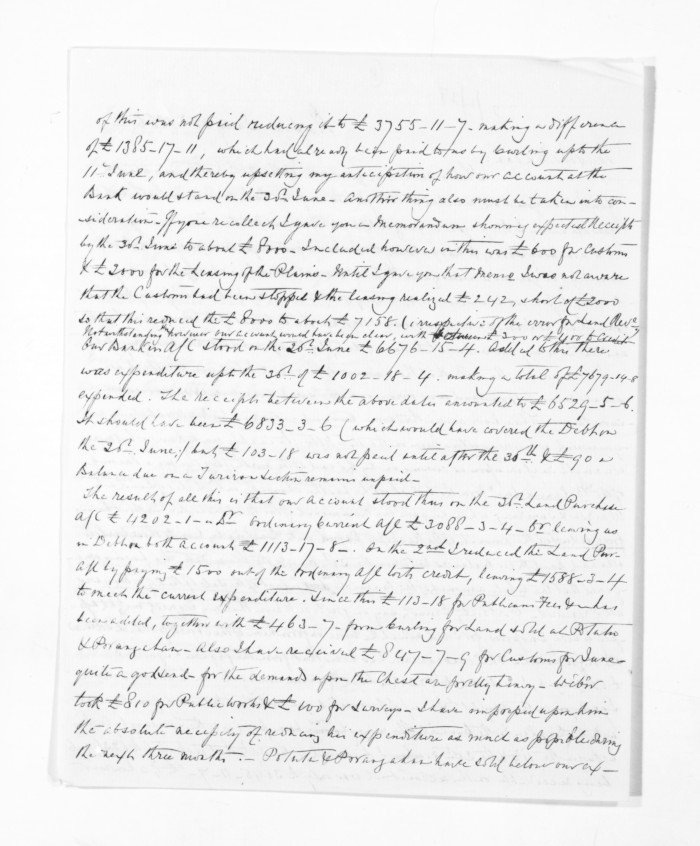 of this was not paid reducing it to £3755-11-7- making a difference
of £1385-17-11, which had already been paid to us by Curling up to the
11th June, and thereby upsetting my anticipation of how our account at the
Bank would stand on the 30th June - Another thing also must be taken into con-
-sideration - If you recollect I gave you a Memorandum showing expected Receipts
by the 30th June to about £8000 - Included however in this was £600 for Customs
& £2000 for the Leasing of the Plains - Until I gave you that memo I was not aware
that the Customs had been stopped & the leasing realized £242, short of £2000
so that this reduced the £8000 to about £7158. (irrespective of the error for Land Revs
Notwithstanding this however our account would have been clear, with £300 or £400 to Credit
Our Bankin A/c stood on the 26th June £6676-15-4. Added to this there
was expenditure up to the 30th of £1002-18-4. making a total of £7679-14-8
expended. The receipts between the above dates amounted to £6529-5-6.
It should have been £6833-3-6 (which would have covered the Debt on
the 26th June,) but £103-18 was not paid until after the 30th & £90 a
Balance due on a Section remains unpaid -
The result of all this is that our account stood thus on the 30th Land Purchase
A/c £4202-1-0 Dr Ordinary Current A/c £3088-3-4- Cr leaving us
in Debt on both accounts £1113-17-8-. On the 2nd I reduced the Land Pur-
A/c by paying £1500 out of the Ordinary A/c to its credit, leaving £1588-3-4
to meet the current expenditure. Since this £113-18 for Publicans Fees & has
been added, together with £463-7- from Curling for Land sold at Potutu
& Porangahau - Also I have received £847-7-9 for Customs for June
quite a godsend - for the demands upon the Chest are pretty heavy - Weber
took £810 for Public Works & £600 for Surveys - I have impressed upon him
the absolute necessity of reducing his expenditure as much as possible during
the next three months. - Potutu & Porangahau have sold below our ex-